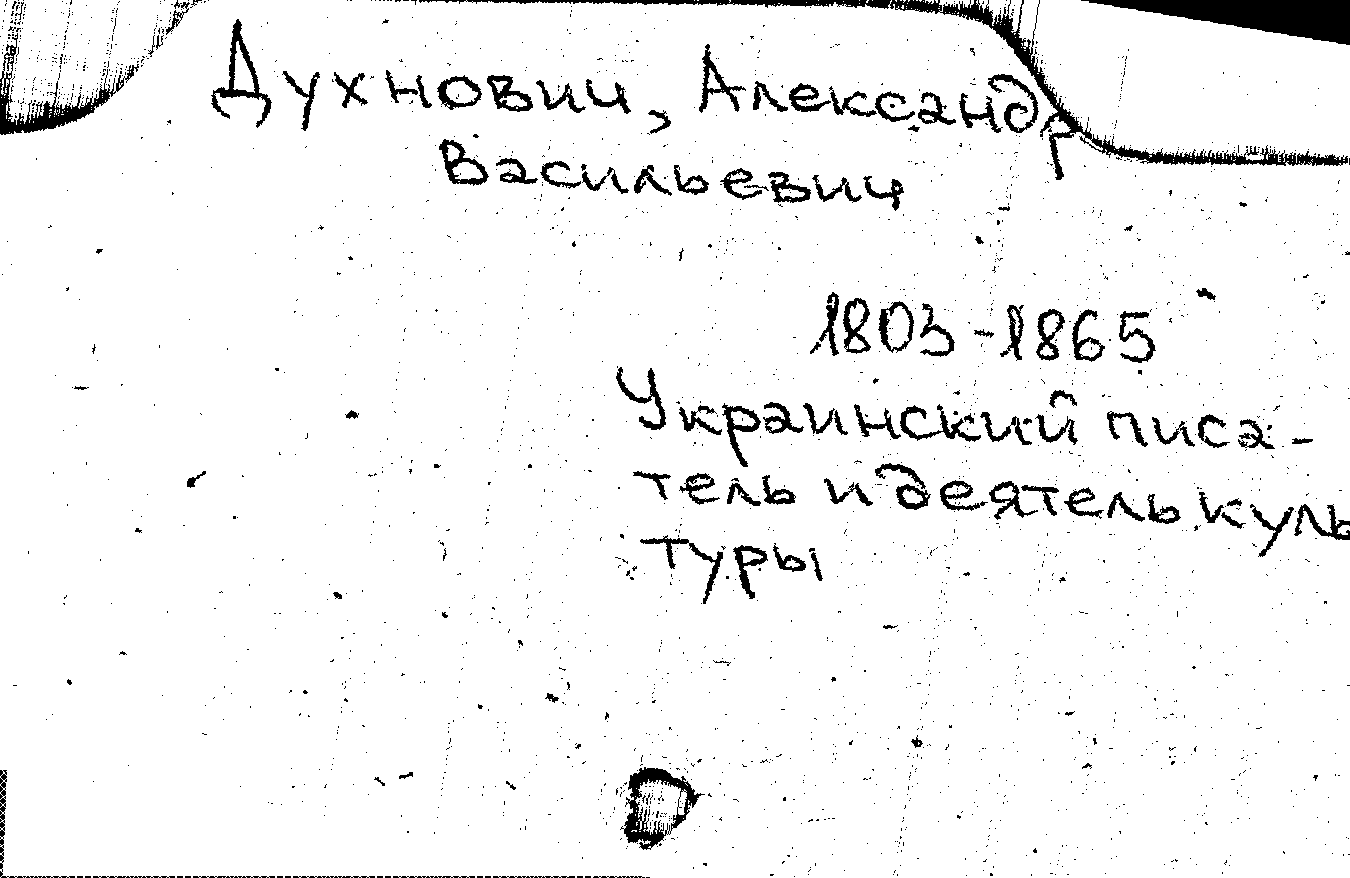 Духнович, Александр
Васильевич
1803-1865
Украинский писа-
тель и деятель куль
туры